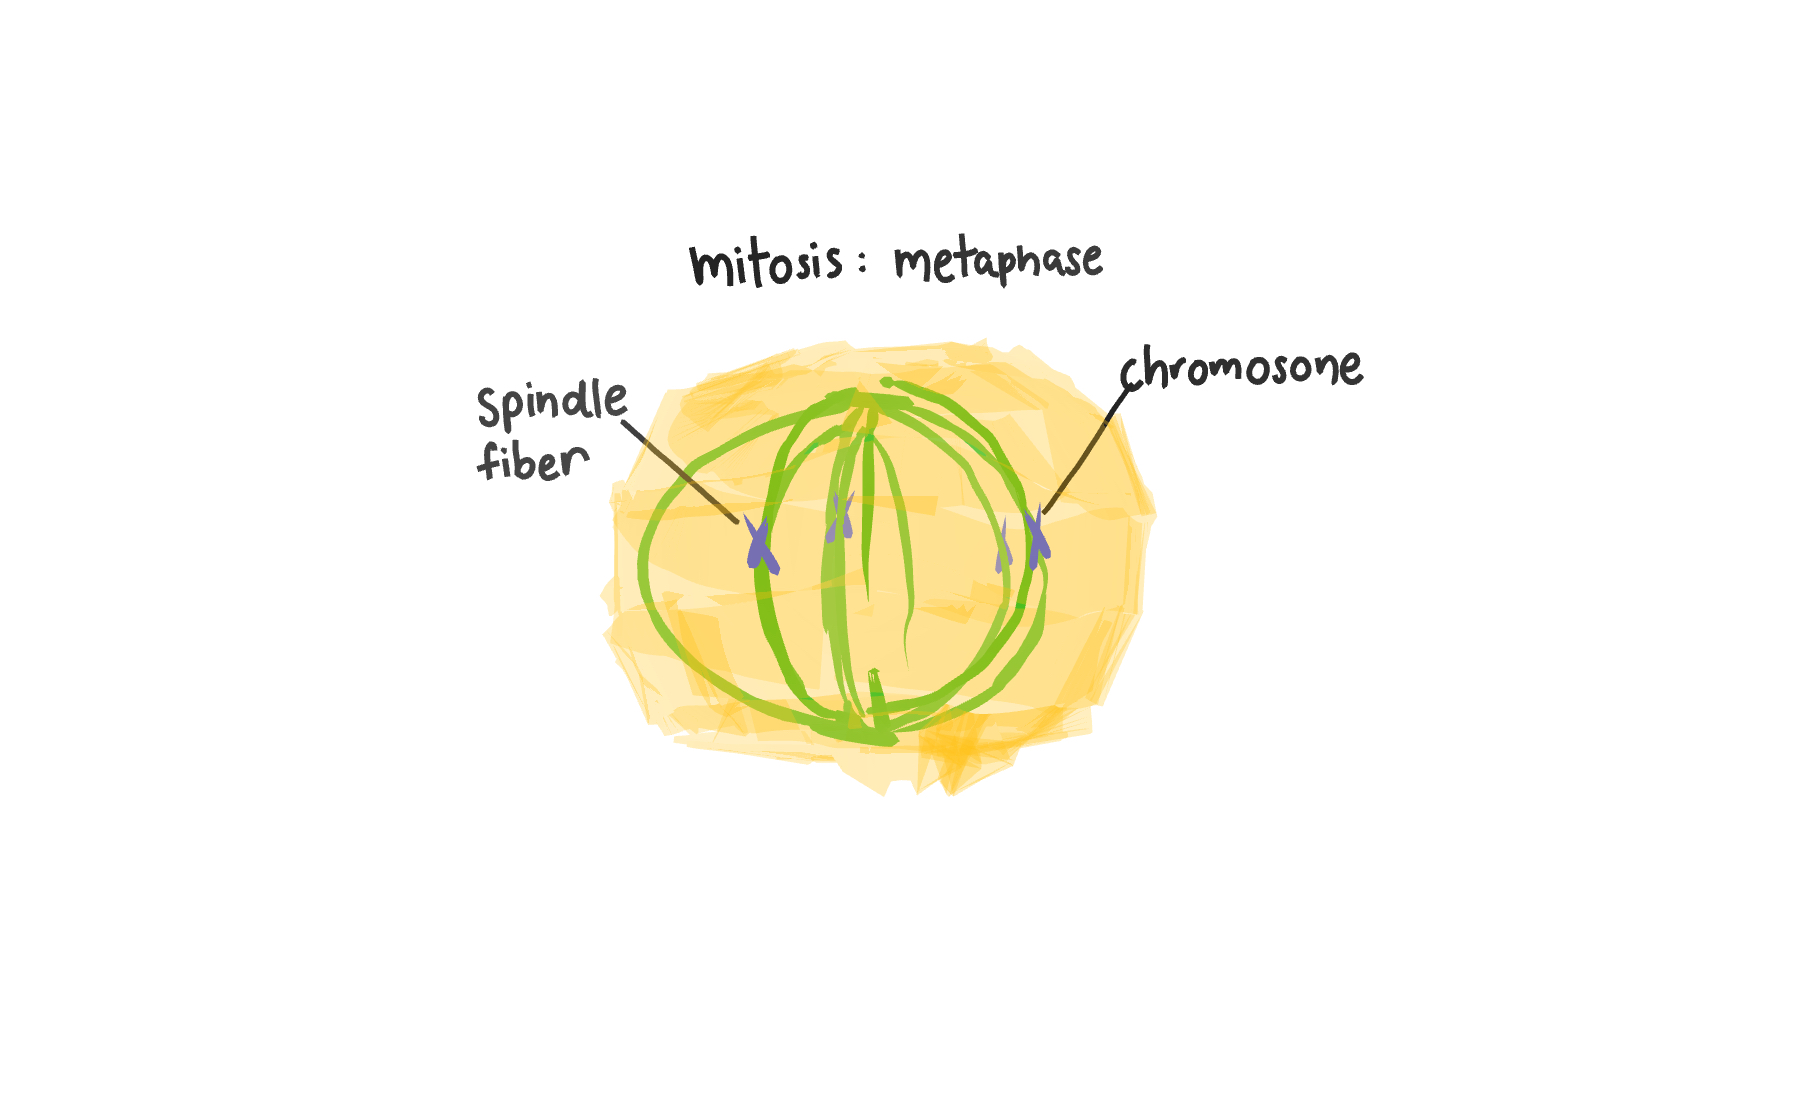 mitosis: metaphase
spindle
fiber
chromosone